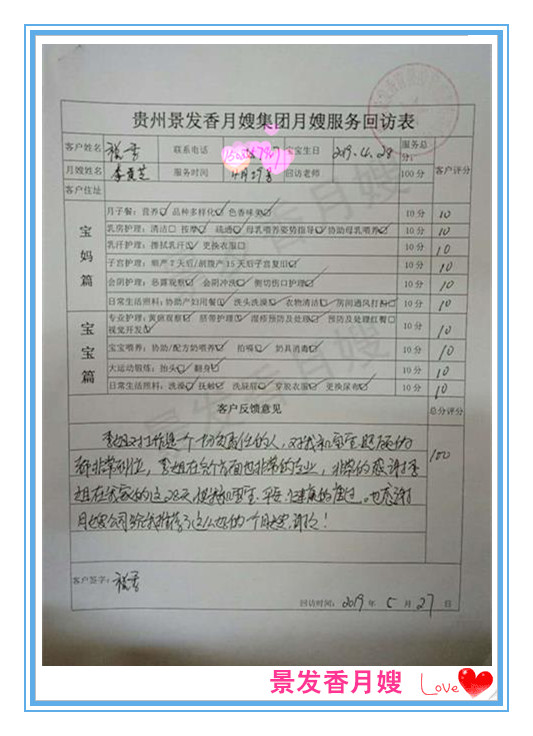 贵州景发香月嫂集团月嫂服务回访表
客户姓名 联系电话 宝宝生日 2019.4.28 服务总分: 客户评分
月嫂姓名 服务时间 4月29 回访老师 100分
客户住址
宝妈篇
月子餐:营养☑ 品种多样化☑ 色香味美☑ 10分 10
乳房护理:清洁☐ 按摩☑ 疏通☑ 母乳喂养姿势指导☑ 协助母乳喂养☑ 10分 10
乳汗护理:擦拭乳汗☑ 更换衣服☐ 10分 10
子宫护理:顺产7天后/剖腹产15天后子宫复旧☑ 10分 10
会阴护理:恶露观察☑ 会阴冲洗☑ 侧切伤口护理☑ 10分 10
日常生活照料:协助产妇用餐☑ 洗头洗澡☑ 衣物清洁☑ 房间通风打扫☐ 10分 10
宝宝篇
专业护理:黄疸观察☑ 脐带护理☑ 湿疹预防及处理☐ 预防及处理红臀☐ 视觉开发☑ 10分 10
宝宝喂养:协助/配方奶喂养☑ 拍嗝☑ 奶具消毒☑ 10分 10
大运动锻炼:抬头☑ 翻身☑ 10分 10
日常生活照料:洗澡☑ 抚触☑ 洗屁屁☑ 穿脱衣服☑ 更换尿布☑ 10分 10
客户反馈意见 总分评分
李姐对工作是一个份负责任的人,对我和宝宝照顾的
都非常到位,李姐在各个方面也非常的专业,非常的感谢李
姐在我家的这28天,把我和宝宝平平安安健康的度过,也感谢
月嫂公司给我推荐了这么好的一个月嫂,谢谢!
100
客户签字:
回访时间:2019年5月27日
景发香月嫂
景发香月嫂 Love